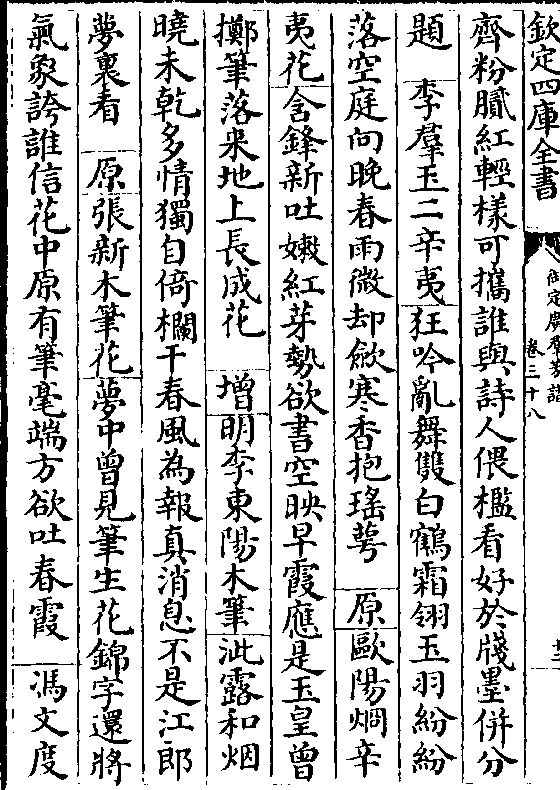 欽定四庫全書
御定廣羣芳譜
卷三十八
齊粉膩紅輕樣可攜誰與詩人偎檻看好於牋墨併分
題　李羣玉二辛夷狂吟亂舞雙白鶴霜翎玉羽紛紛
落空庭向晚春雨微却斂寒香抱瑤萼　原歐陽烱辛
夷花含鋒新吐嫩紅芽勢欲書空映早霞應是玉皇曾
擲筆落來地上長成花　增明李東陽木筆泚露和烟
曉未乾多情獨自倚欄干春風為報真消息不是江郎
夢裏看　原張新木筆花夢中曾見筆生花錦字還將
氣象誇誰信花中原有筆毫端方欲吐春霞　馮文度